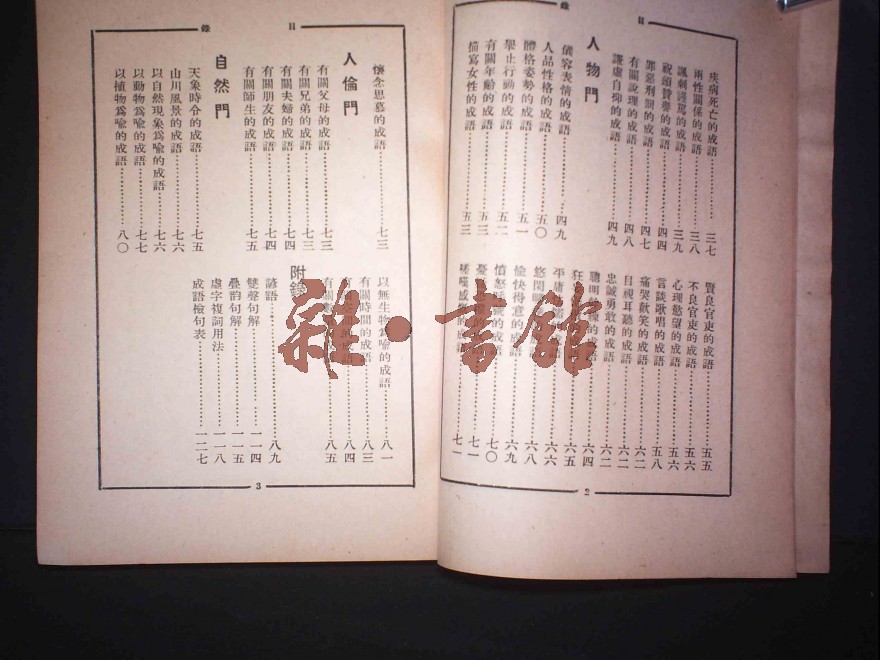 目 錄
疾病死亡的成語…………三七
兩性關係的成語…………三八
諷刺謾罵的成語…………三九
祝頌贊譽的成語…………四四
罪惡刑罰的成語…………四七
有關說理的成語…………四八
謙虛自抑的成語…………四九
人物門
儀容表情的成語…………四九
人品性格的成語…………五〇
體格姿勢的成語…………五一
舉止行動的成語…………五二
有關年齡的成語…………五三
描寫女性的成語…………五三
賢良官吏的成語…………五五
不良官吏的成語…………五六
心理慾望的成語…………五六
言談歌唱的成語…………五八
痛哭歡笑的成語…………六二
目視耳聽的成語…………六二
忠誠勇敢的成語…………六二
聰明 的成語…………六四
狂 的成語…………六五
平庸 的成語…………六六
悠閑 的成語…………六八
愉快得意的成語…………六九
憤怒 的成語…………七〇
憂 的成語…………七一
嗟嘆感 的成語…………七一
2
目 錄
懷念思慕的成語…………七三
人倫門
有關父母的成語…………七三
有關兄弟的成語…………七三
有關夫婦的成語…………七四
有關朋友的成語…………七四
有關師生的成語…………七五
自然門
天象時令的成語…………七五
山川風景的成語…………七六
以自然現象為喻的成語…………七六
以動物為喻的成語…………七七
以植物為喻的成語…………八〇
以無生物為喻的成語…………八一
有關時間的成語…………八三
有 的成語…………八四
有關 的成語…………八五
附錄
諺語…………八九
雙聲句解…………一一四
疊韵句解…………一一五
虛字複詞用法…………一一八
成語檢句表…………一二七
3
雜·書館